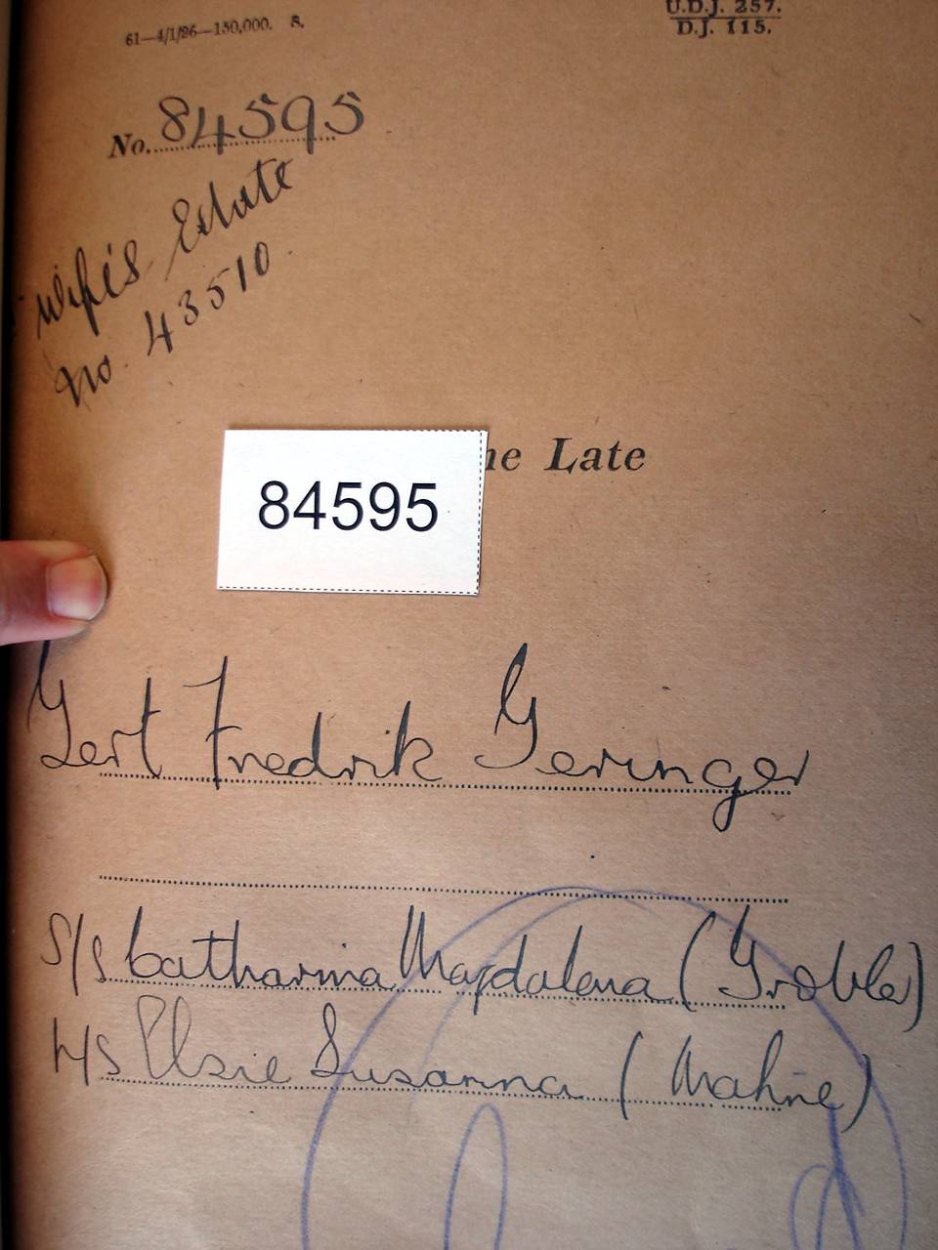 61—4/1/26—150,000. S.
U.D.J. 257.
D.J. 115.
No. 84595
Wife's Estate
No. 43510.
84595
he Late
Gert Fredrik Geringer
S/s Catharina Magdalena (Grobler)
H/s Elsie Susanna (Mahne)